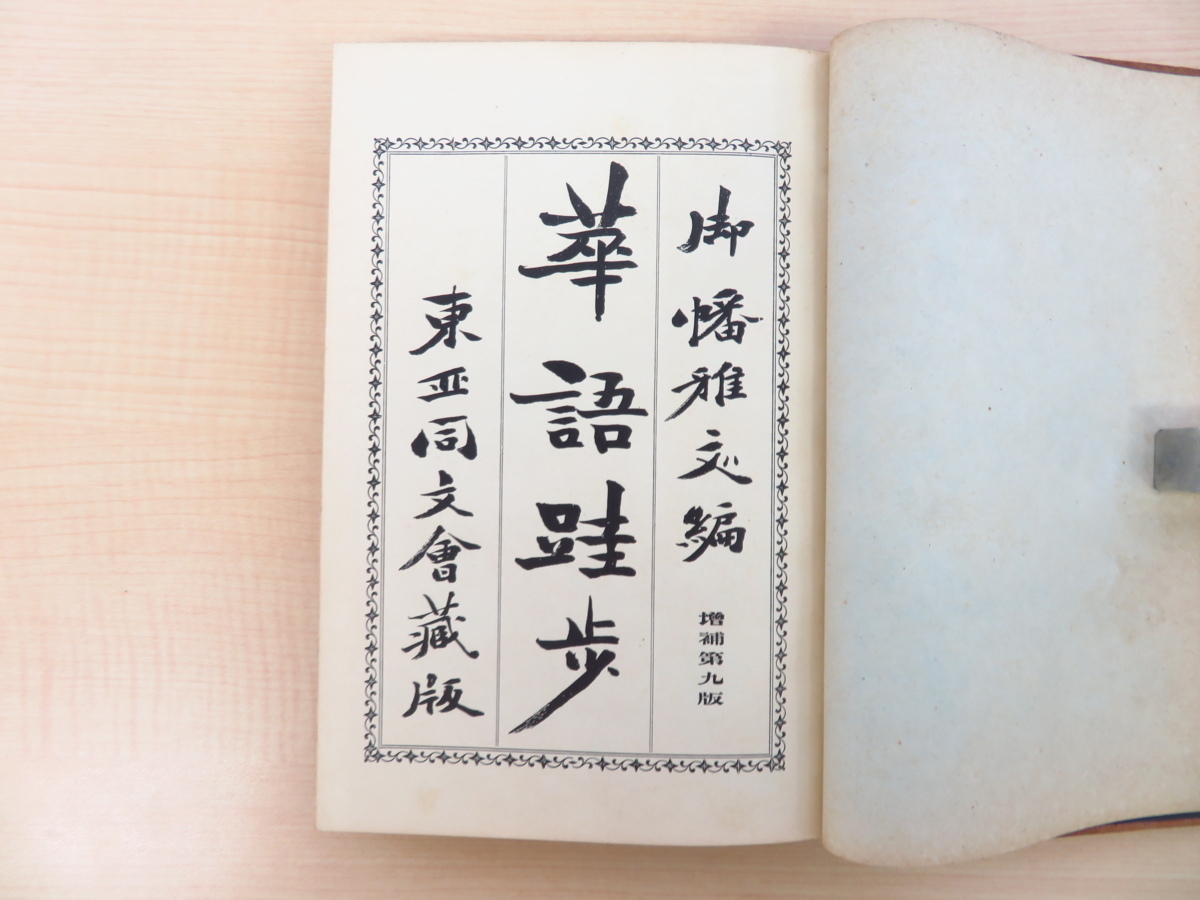 御幡雅文編
增補第九版
華語跬步
東亞同文會藏版